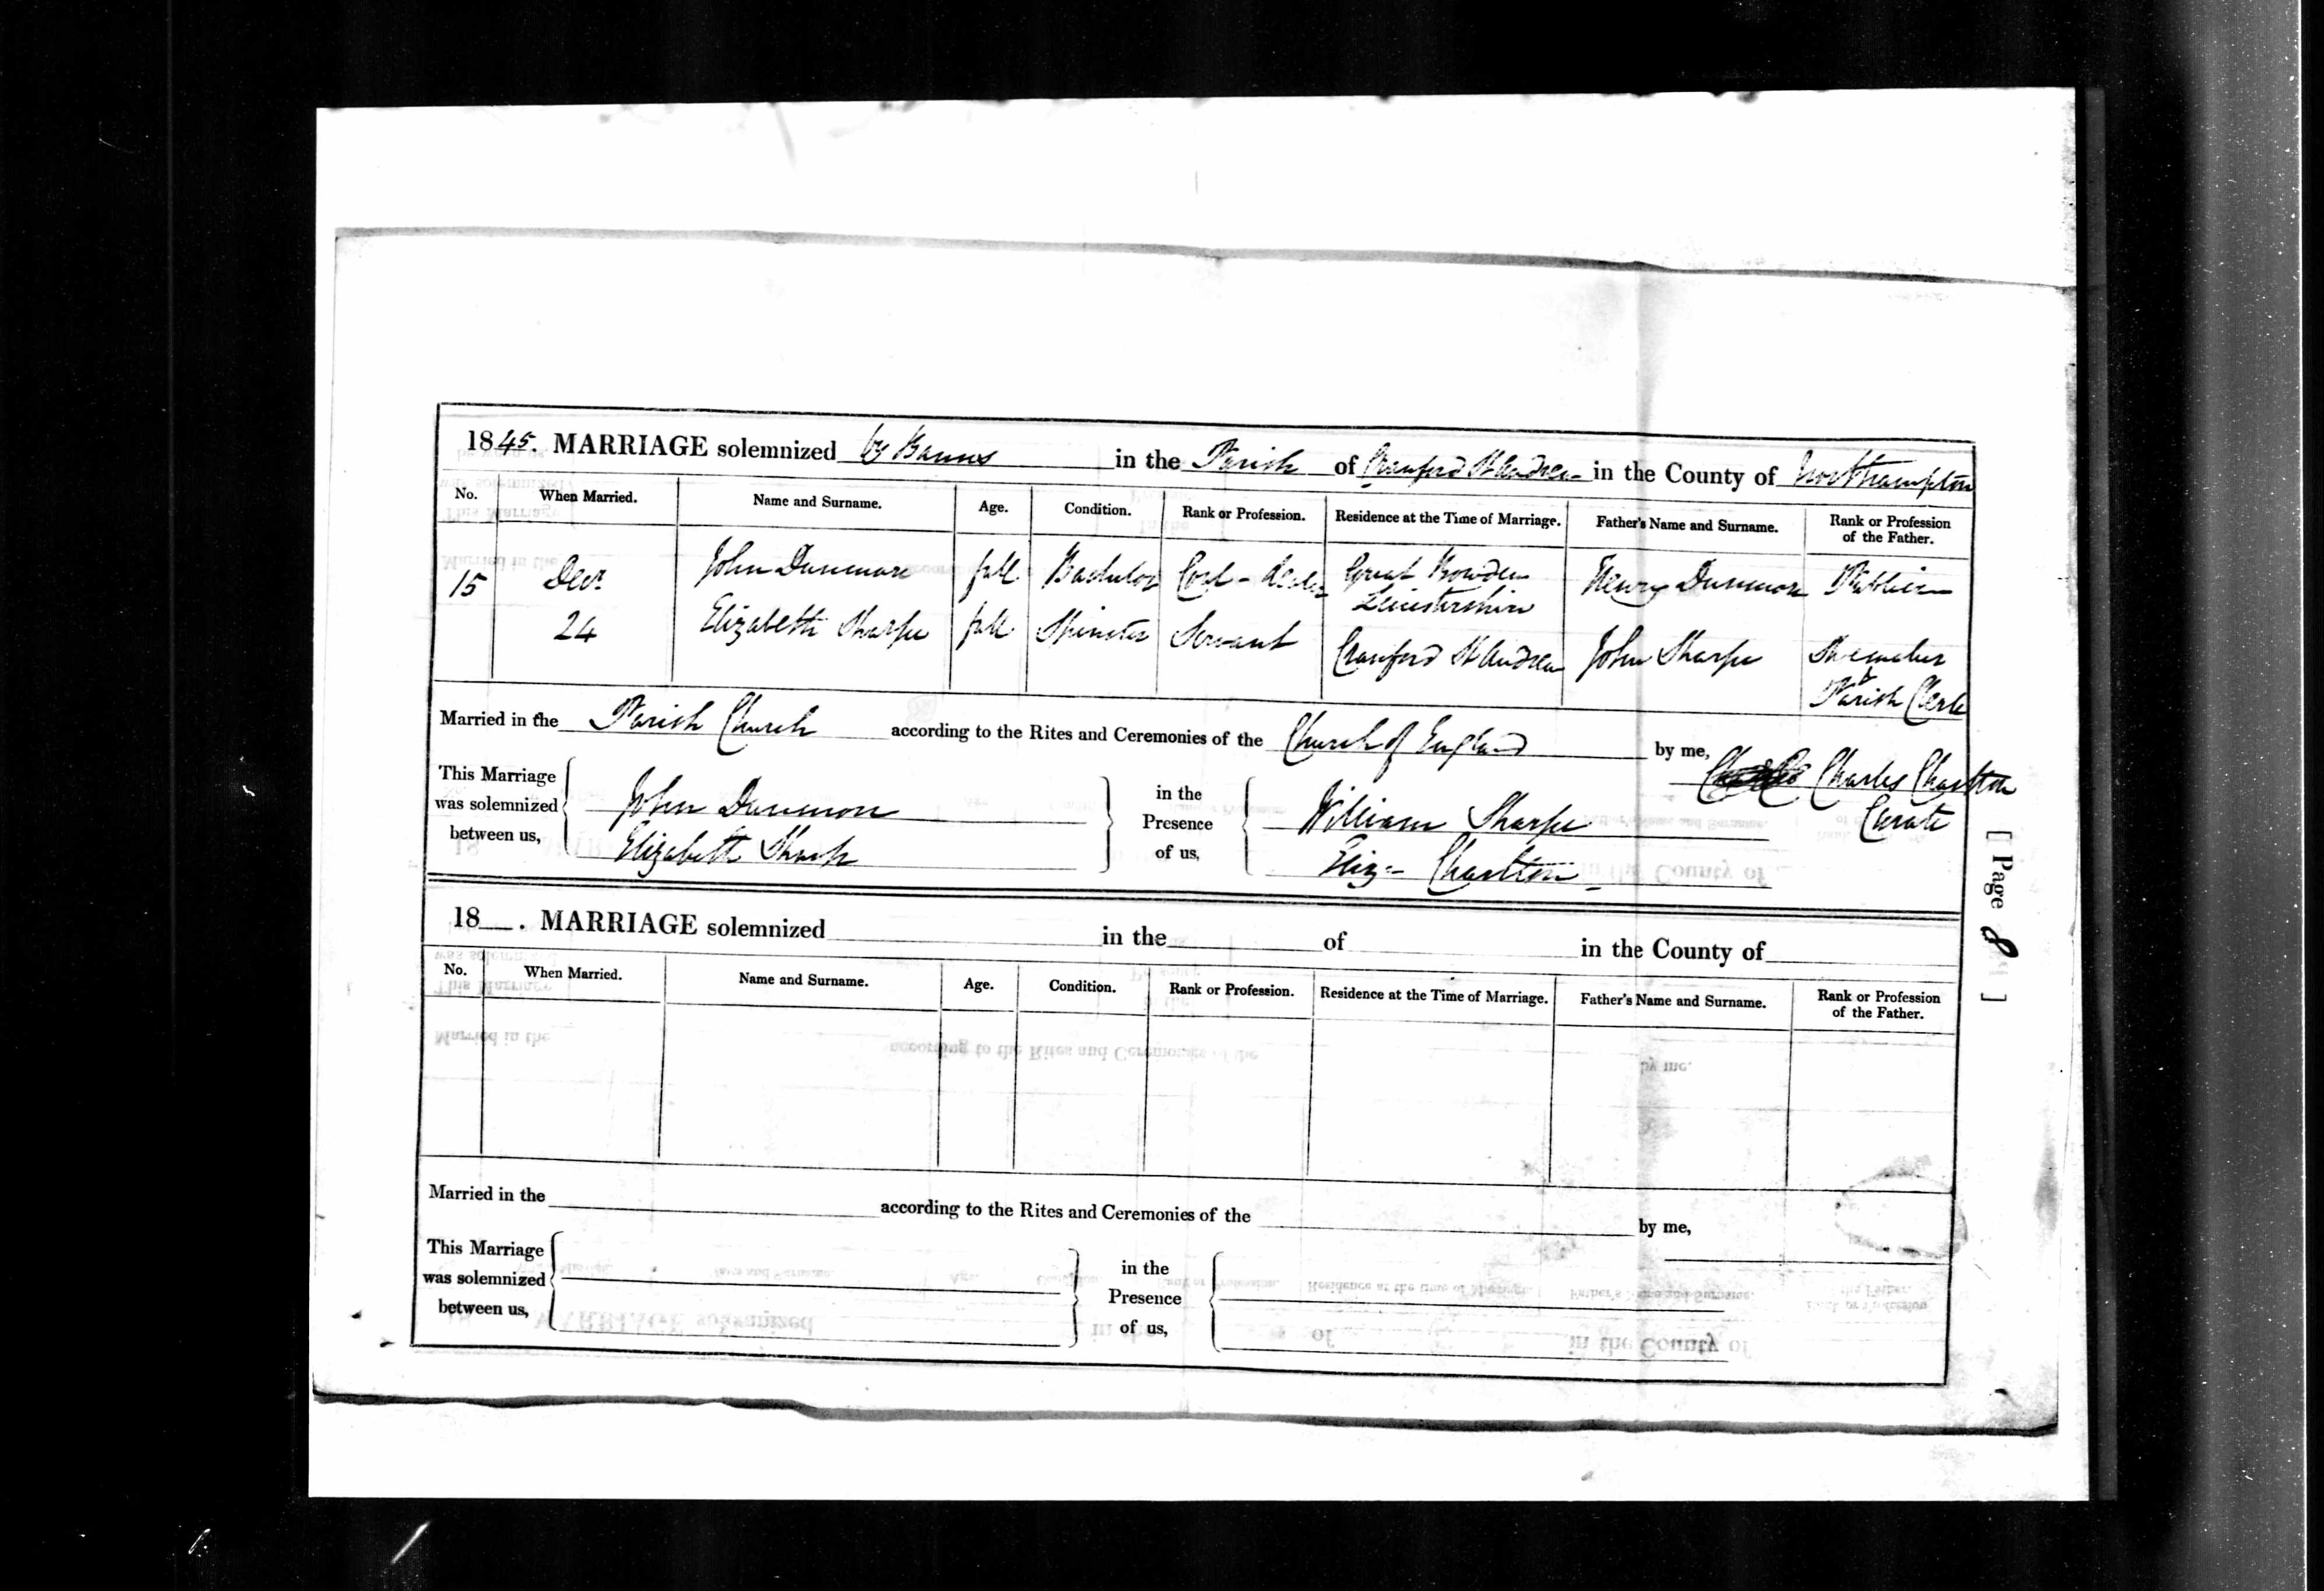 1845. MARRIAGE solemnized by Banns in the Parish of Cranford St Andrew in the County of Northampton
No. When Married. Name and Surname. Age. Condition. Rank or Profession. Residence at the Time of Marriage. Father's Name and Surname. Rank or Profession of the Father.
15 Decr 24
John Dunmore full Bachelor Coal-dealer Great Bowden Leicestershire Henry Dunmore Publican
Elizabeth Sharpe full Spinster Servant Cranford St Andrew John Sharpe Shoemaker & Parish Clerk
Married in the Parish Church according to the Rites and Ceremonies of the Church of England by me, Charles Charlton
Curate
This Marriage was solemnized between us,
John Dunmore
Elizabeth Sharpe
in the Presence of us,
William Sharpe
Eliz:- Charlton
[ Page 8 ]
18 . MARRIAGE solemnized in the of in the County of
No. When Married. Name and Surname. Age. Condition. Rank or Profession. Residence at the Time of Marriage. Father's Name and Surname. Rank or Profession of the Father.
Married in the according to the Rites and Ceremonies of the by me,
This Marriage was solemnized between us,
in the Presence of us,